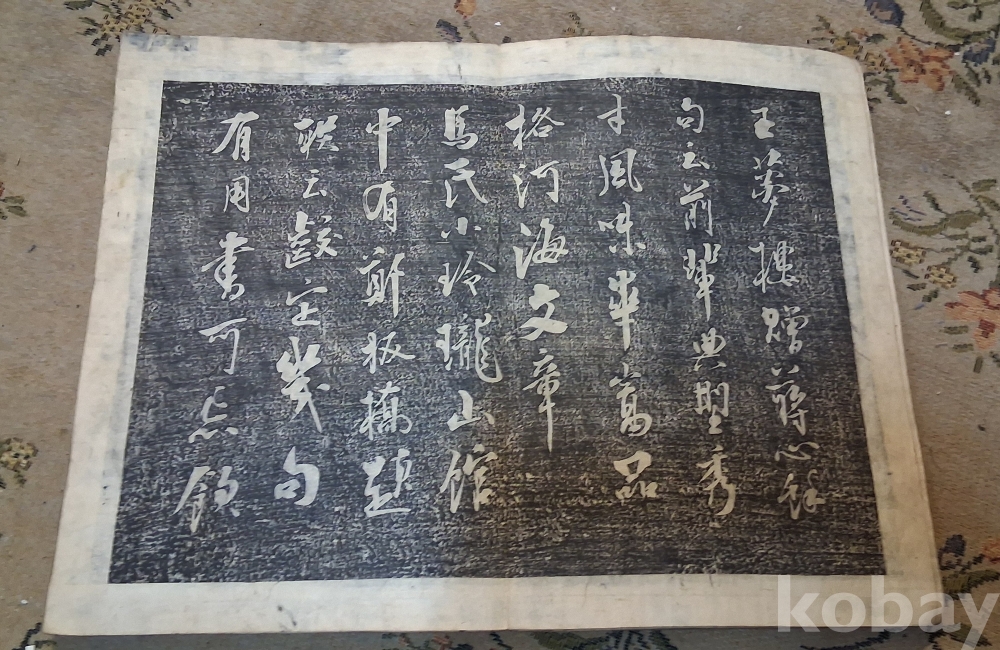 王夢樓贈蔣心餘
句云前輩典型秀
才風味華嵩品
格河海文章
馬氏小玲瓏山館
中有鄭板橋題
联云齩定幾句
有用書可忘飲
kobay